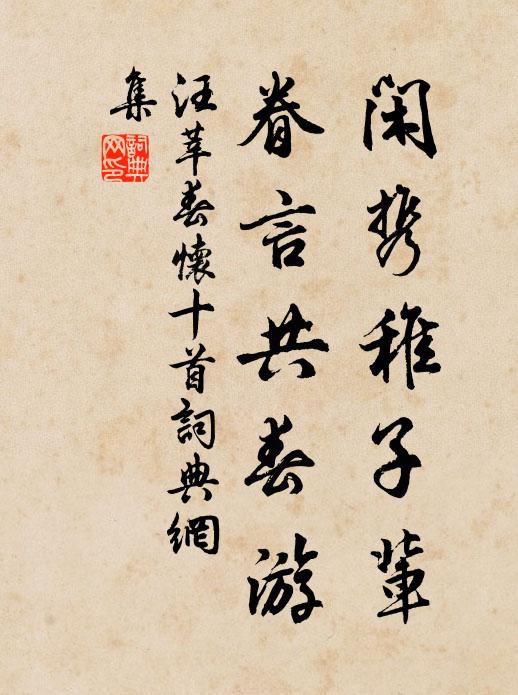 闲携稚子辈
眷言共春游
汪莘春懷十首詞典網
集
詞典
网印